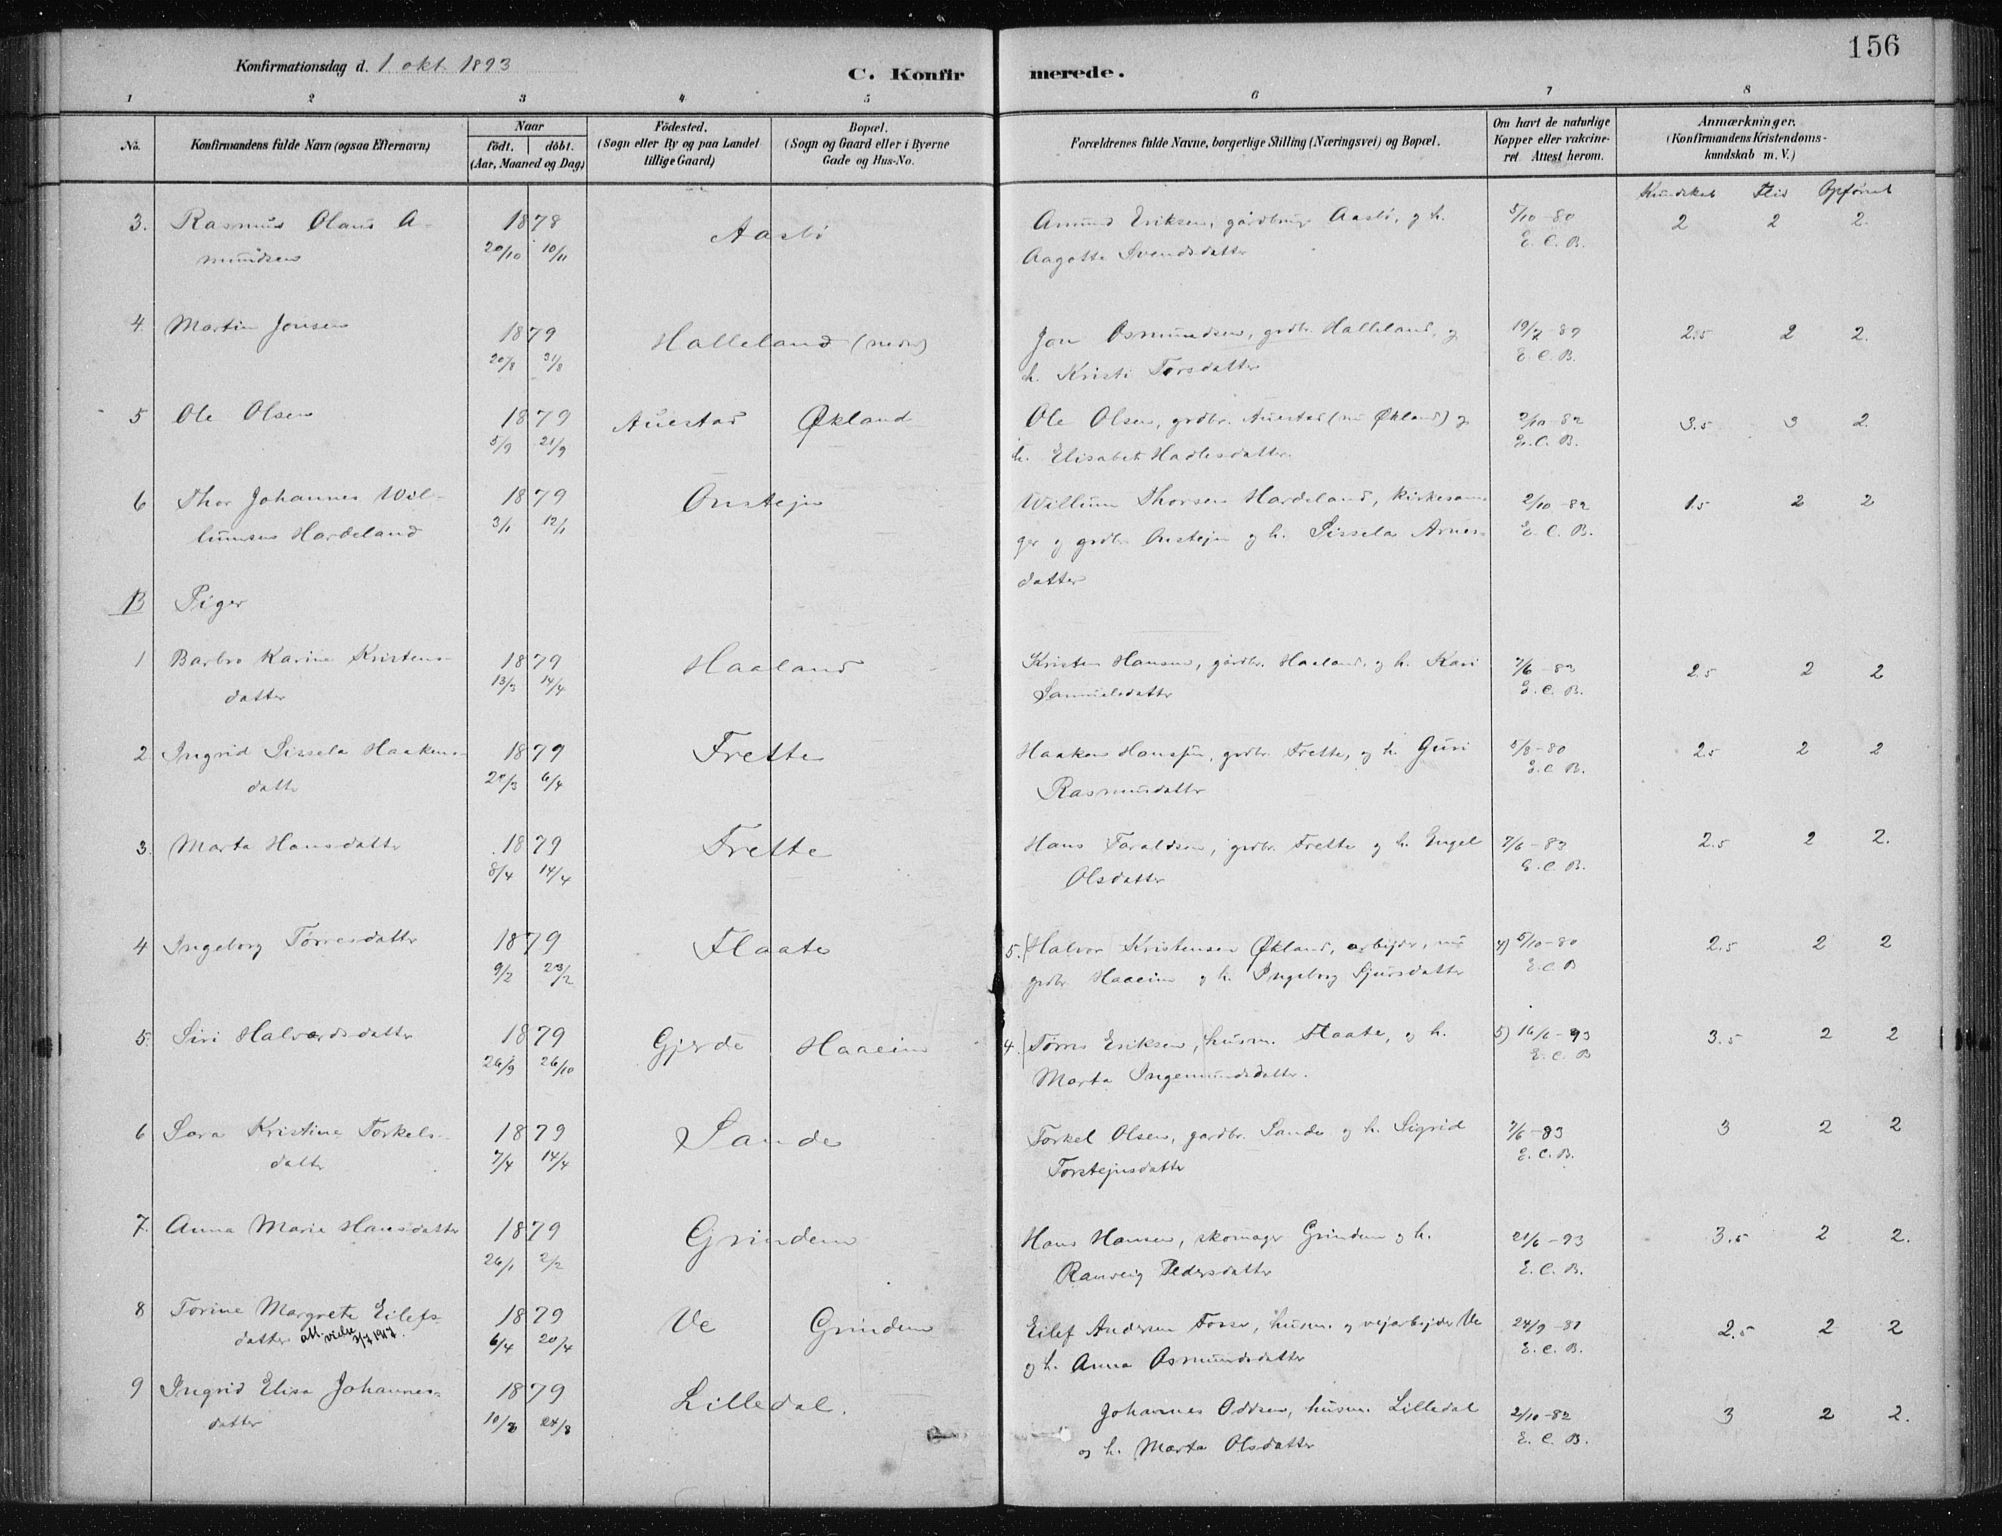 156
Konfirmationsdag d. 1 okt. 1893
C. Konfirmerede.
1 2 3 4 5 6 7 8
No.
Konfirmandens fulde Navn (ogsaa Efternavn)
Naar
født. døbt.
(Aar, Maaned og Dag)
Fødested.
(Sogn eller By og paa Landet
tillige Gaard)
Bopæl.
(Sogn og Gaard eller i Byerne
Gade og Hus-No.
Forældrenes fulde Navne, borgerlige Stilling (Næringsvei) og Bopæl.
Om havt de naturlige
Kopper eller vakcine-
ret Attest herom.
Anmærkninger.
(Konfirmandens Kristendoms-
kundskab m. V.)
Kundskab Flid Opførsel
3. Rasmus Olaus A- 1878 Aasbø Amund Eriksen, gårdbruger Aasbø, og h. 5/10-80 2 2 2.
mundsen 20/10 10/11 Aagotte Svendsdatter E. C. B.
4. Martin Jonsen 1879 Halleland (nedre) Jon Osmundsen, grdbr. Halleland, og 2.5 2 2.
20/8 31/8 h. Kristi Torsdatter E. C. B.
5 Ole Olsen 1879 Auestad Økland Ole Olsen, grdbr. Auestad (nu Økland) og 2/10-82 3.5 3 2.
5/9 21/9 h. Elisabet Hadlesdatter. E. C. B.
6 Thor Johannes Wil- 1879 Onstejn Willum Thorsen Hardeland, kirkesan- 2/10-82 1.5 2 2
lumsen Hardeland 3/1 12/1 ger og grdbr. Onstejn og h. Sissela Arnes- E. C. B.
datter
B Piger
1 Barbro Karine Kristens- 1879 Haaland Kristen Hansen, gårdbr. Haaland, og h. Kari 7/6-83 2.5 2 2
datter 13/3 14/4 Samuelsdatter E. C. B.
2 Ingrid Sissela Haakens- 1879 Frette Haaken Hansen, grdbr. Frette, og h. Guri 5/8-80 2.5 2 2
datter 6/4 Rasmusdatter E. C. B.
3. Marta Hansdatter 1879 Frette Hans Taraldsen, grdbr. Frette og h. Engel 7/6-83 2.5 2 2.
8/4 14/4 Olsdatter E. C. B.
4 Ingeborg Tørresdatter 1879 Flaate 5. (Halvor Kristensen Økland, arbejder, nu 4) 5/10-80 2.5 2 2
9/2 23/2 grdbr. Haaeim og h. Ingeborg Sjursdatter E. C. B
5. Siri Halvordsdatter 1879 Gjerde Haaeim 4. (Tørres Eriksen, husm. Flaate, og h. 5) 16/6-93 3.5 2 2
26/9 26/10 Marta Ingemundsdatter. E. C. B
6 Sara Kristine Torkels- 1879 Sande Torkel Olsen, gardbr. Sande og h. Sigrid 7/6-83 3 2 2
datter 7/4 14/4 Torstejnsdatter E. C. B.
7. Anna Marie Hansdatter 1879 Grindem Hans Hansen, skomager Grindem og h. 21/6-93 3.5 2 2.
26/1 2/2 Ranveig Pedersdatter E. C. B.
8 Torine Margrete Eilefs- 1879 Ve Grindem Eilef Andersen Fosse, husm. og vejarbejder Ve 24/9-81 2.5 2 2
datter att. vielse 3/7 1917. 6/4 20/4 og h. Anna Osmundsdatter E. C. B.
9 Ingrid Elisa Johannes- 1879 Lilledal. Johannes Oddsen, husm. Lilledal 2/10-82 3 2 2.
datter 10/8 24/8 og h. Marta Olsdatter E. C. B.